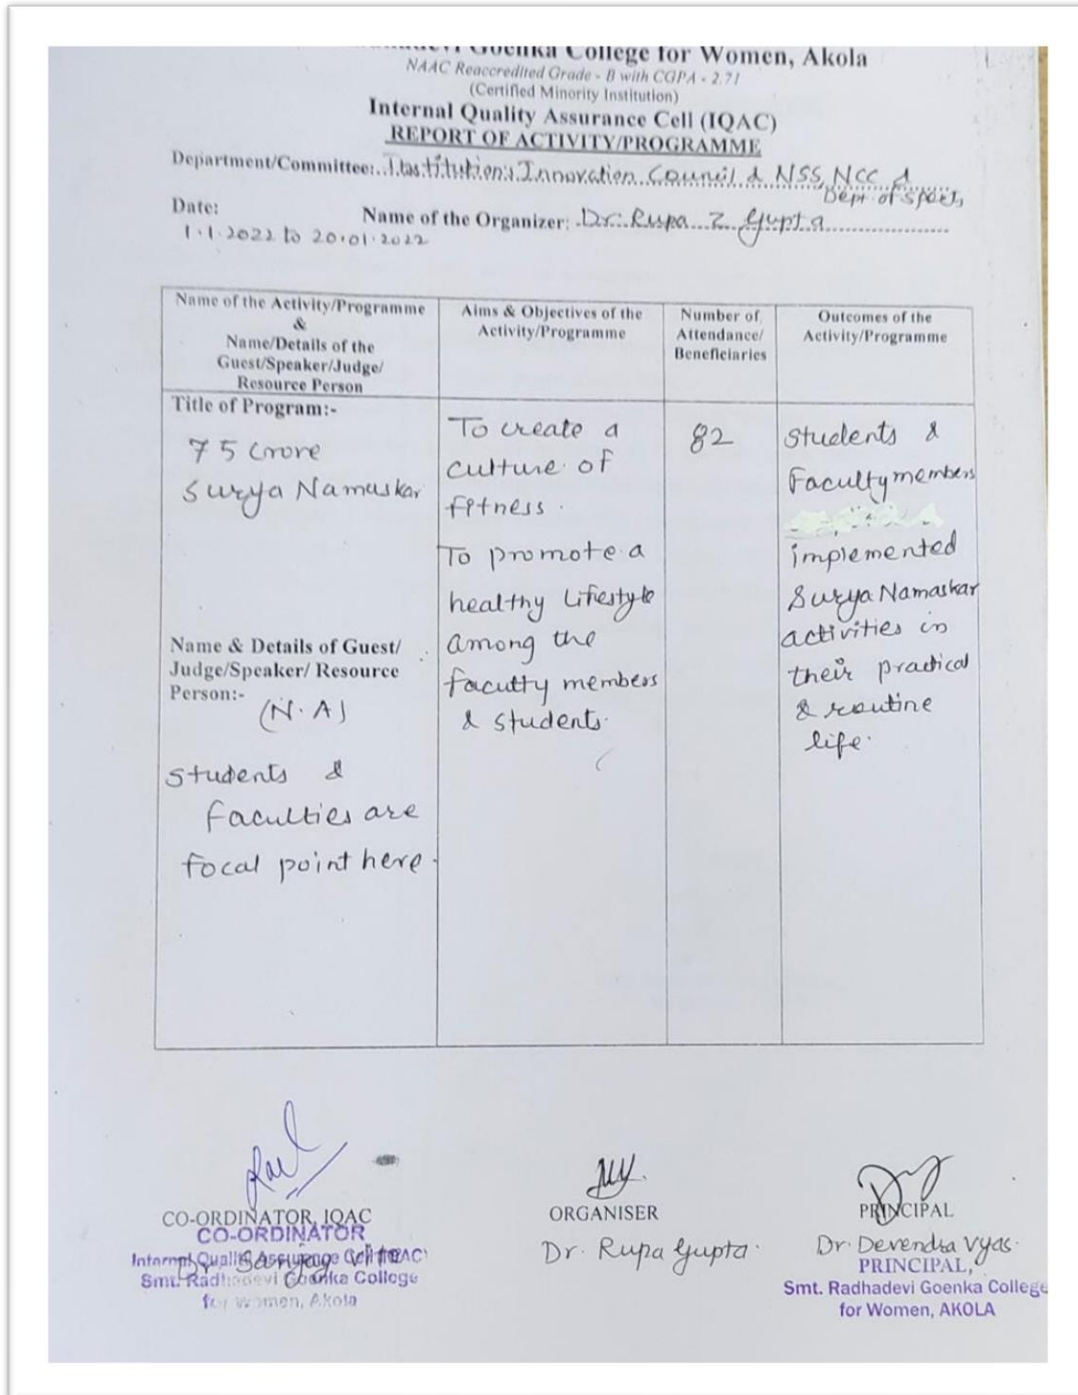 Goenka College for Women, Akola
NAAC Reaccredited Grade - B with CGPA - 2.71
(Certified Minority Institution)
Internal Quality Assurance Cell (IQAC)
REPORT OF ACTIVITY/PROGRAMME
Department/Committee: Institution's Innovation Council & NSS, NCC &
Dept. of Sports
Date: Name of the Organizer: Dr. Rupa Z Gupta
1.1.2022 to 20.01.2022
Name of the Activity/Programme
&
Name/Details of the
Guest/Speaker/Judge/
Resource Person
Aims & Objectives of the
Activity/Programme
Number of
Attendance/
Beneficiaries
Outcomes of the
Activity/Programme
Title of Program:-
75 Crore
Surya Namaskar
Name & Details of Guest/
Judge/Speaker/ Resource
Person:-
(N.A)
Students &
Faculties are
focal point here.
To create a
culture of
fitness.
To promote a
healthy Lifestyle
among the
faculty members
& students.
82
Students &
Faculty members
implemented
Surya Namaskar
activities in
their practical
& routine
life.
CO-ORDINATOR, IQAC
CO-ORDINATOR
Internal Quality Assurance Cell (IQAC)
Dr. Sanjay
Smt. Radhadevi Goenka College
for women, Akola
ORGANISER
Dr. Rupa Gupta.
PRINCIPAL
Dr. Devendra Vyas.
PRINCIPAL,
Smt. Radhadevi Goenka College
for Women, AKOLA